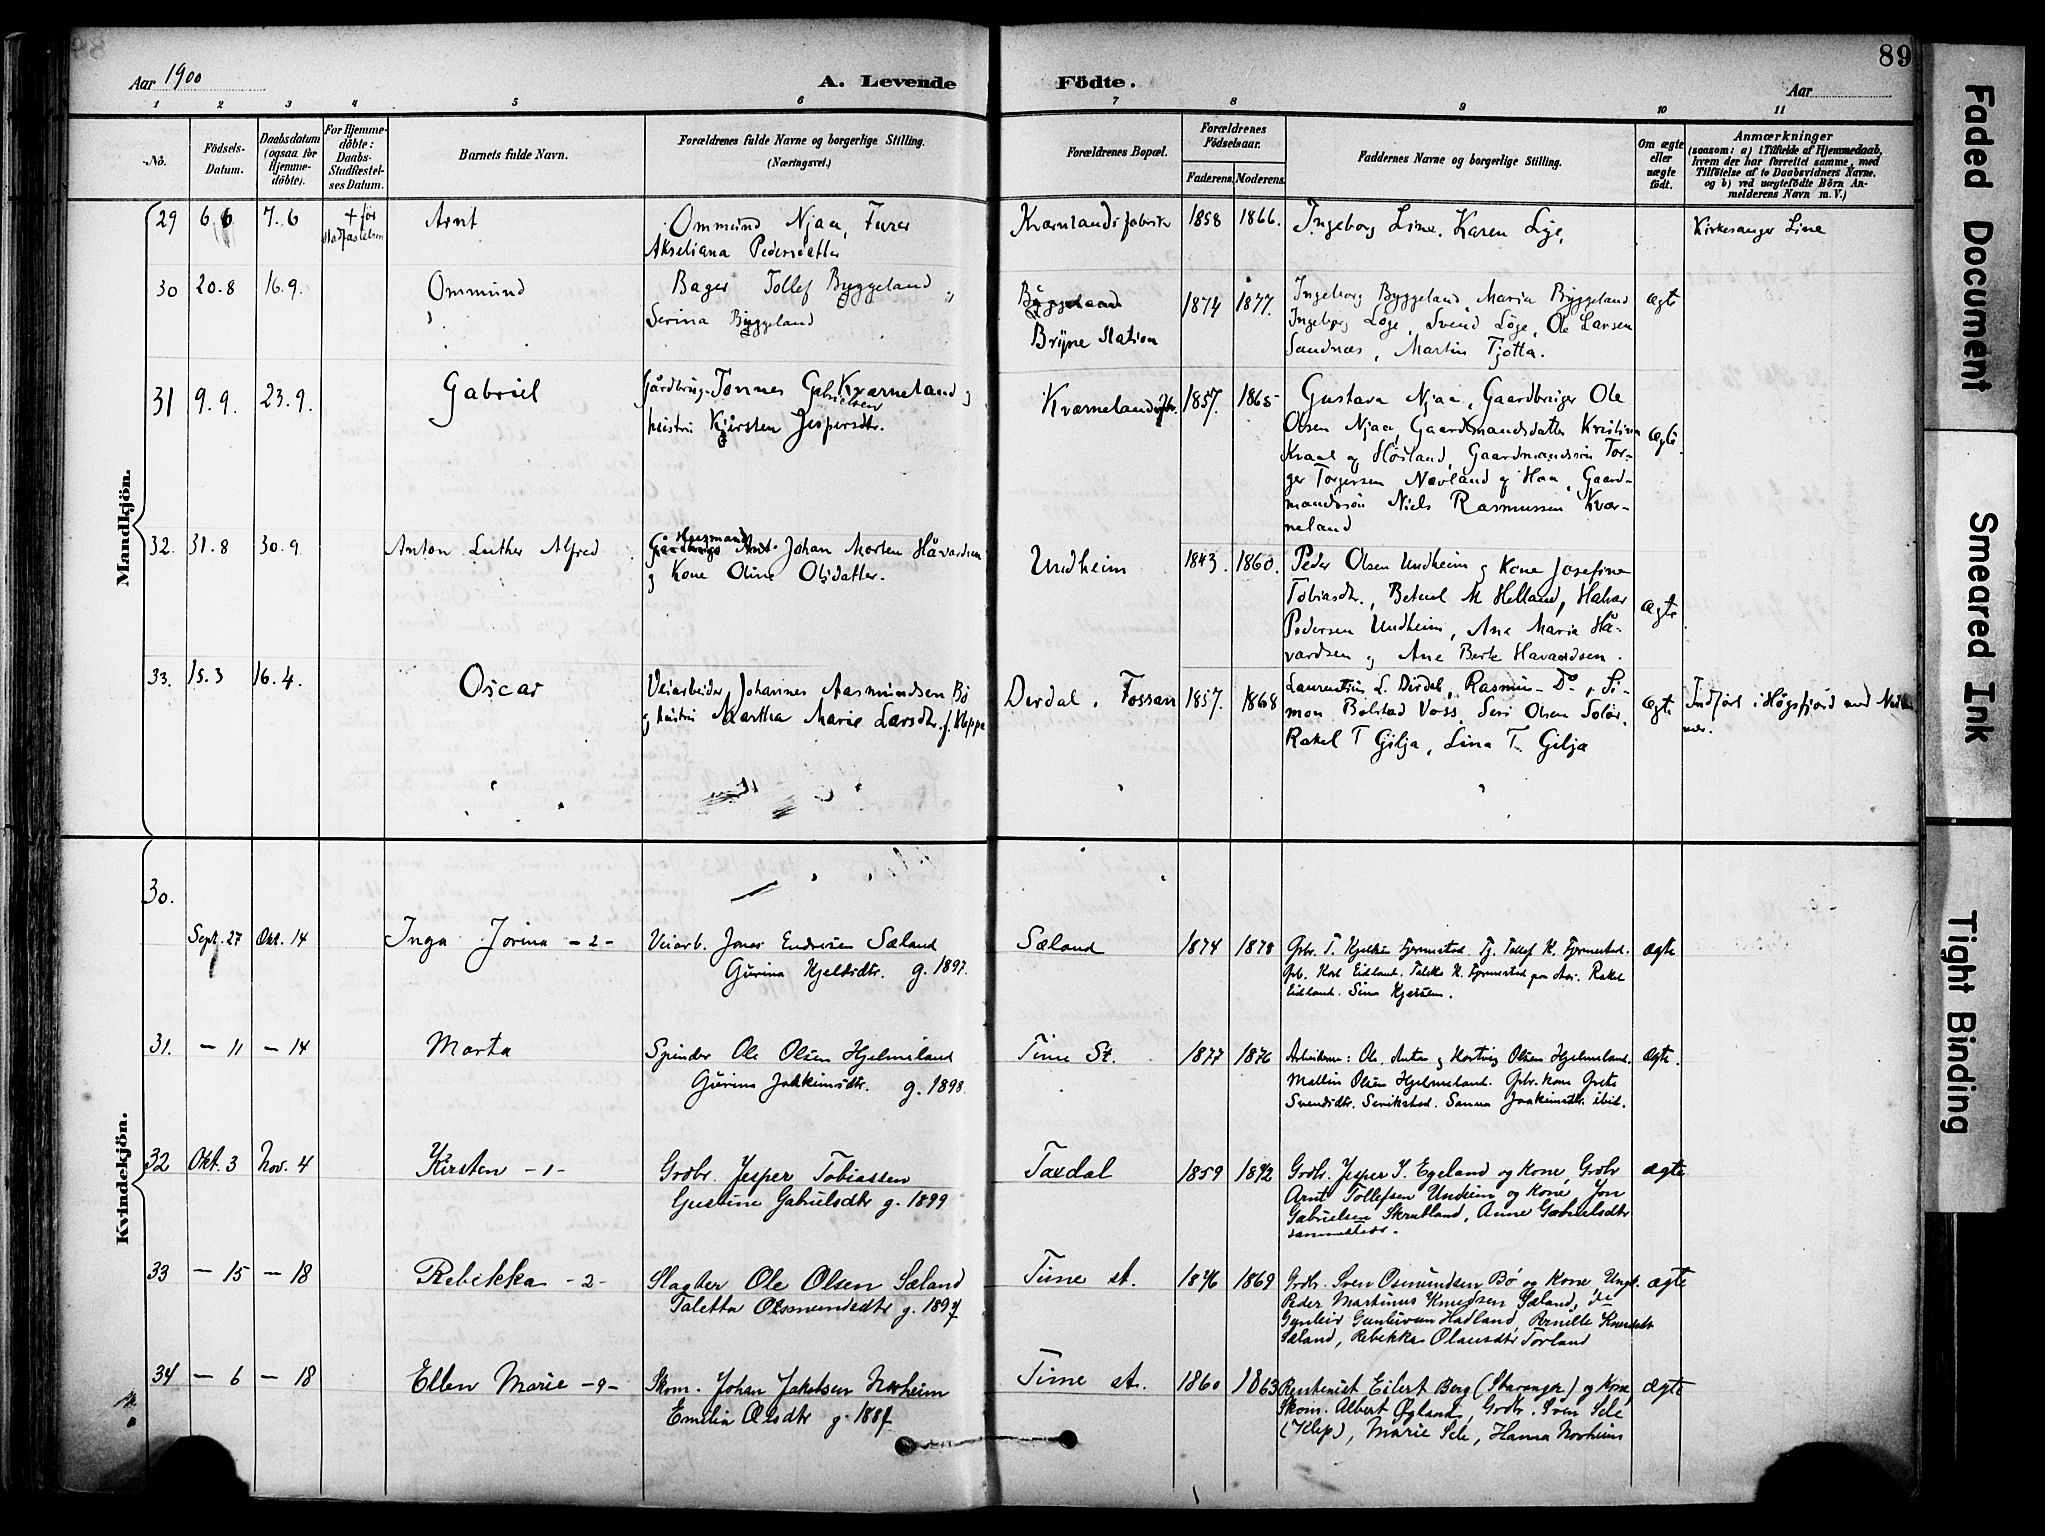 Aar 1900
A. Levende Födte.
Aar
89
1 2 3 4 5 6 7 8 9 10 11
No.
Födsels-Datum.
Daabsdatum (ogsaa for Hjemmedöbte).
For Hjemmedöbte: Daabs-Stadfæstelses Datum.
Barnets fulde Navn.
Forældrenes fulde Navne og borgerlige Stilling.
(Næringsvei.)
Forældrenes Bopæl.
Forældrenes Födselsaar.
Faderens. Moderens.
Faddernes Navne og borgerlige Stilling.
Om ægte eller uægte födt.
Anmærkninger
(saasom: a) i Tilfælde af Hjemmedaab, hvem der har forrettet samme, med Tilföielse af to Daabsvidners Navne, og b) ved uægtefödte Börn Anmelderens Navn m. V.)
Mandkjön.
29 6.6 7.6 + før stadfæstelsen Arnt Ommund Njaa, Furer Kværnlands fabrik 1858 1866. Ingeborg Line, Karen Lye, Kirkesanger Line
Akseliana Pedersdatter
30 20.8 16.9. Ommund Bager Tollef Byggeland 1874 1877. Ingeborg Byggeland Maria Byggeland ægte
Serina Byggeland Bryne Station Ingeborg Løge, Svend Löge, Ole Larsen
Sandnæs, Martin Tjotta.
31 9.9. 23.9. Gabriel Gårdbrug. Tønnes Gabrielsen Kværneland og Kvernelandsfbr. 1857. 1865 Gustava Njaa, Gaardbruger Ole
hustru Kjersten Jespersdtr. Olsen Njaa, Gaardmandsdatter Kristine ægte.
og Høiland, Gaardmandssøn Tor-
ger Torgersen Nævland og Haa, Gaard-
mandssön Niels Rasmussen Kvær-
neland
32. 31.8 30.9. Anton Luther Alfred Husmand Johan Morten Håvardsen Undheim 1843. 1860. Peder Olsen Undheim og Kone Josefine
og Kone Oline Olsdatter. Tobiasdtr., Betuel M Helland, Halvor ægte
Pedersen Undheim, Ane Maria Hå-
vardsen og Ane Berte Havardsen.
33. 15.3 16.4. Oscar Veiarbeider Johannes Aasmundsen Bø Dirdal, Fossan 1857. 1868 Laurentius L. Dirdal, Rasmus Do, Si- ægte Indført i Høgsfjord med Num-
og hustru Martha Marie Larsdtr. f. Kleppe mon Bolstad Voss, Seri Olsen Solør, mer.
Rakel T Gilja, Lina T. Gilja
Kvindekjön.
30.
Sept. 27 Okt. 14 Inga Jorina -2- Veiarb. Jonas Endresen Sæland Sæland 1874 1878 Grbr. T. Kjelsen Fjermestad. Tj. Tollef K. Fjermestad. ægte
Gurina Kjelsdtr. g. 1897. Grb. Karl Eidland. Taletta K. Fjermestad paa Aas. Rakel
Eidland. Sina Kjelsen.
31. - 11 - 14 Marta Spinder Ole Olsen Hjelmeland Time St. 1877 1876 Arbeiderne: Ole, Anton og Hartvig Olsen Hjelmeland. ægte.
Gurina Joakimsdtr. g. 1898. Mallin Olsen Hjelmeland. Grbr. kone Grete
Svendsdtr. Serikstad. Sanna Joakimsdtr. ibid.
32 Okt. 3 Nov. 4 Kirsten -1- Grdbr. Jesper Tobiassen Taxdal 1859 1872 Grdbr. Jesper I. Egeland og Kone, Grdbr ægte
Gustine Gabrielsdtr g. 1899 Arnt Tollefsen Undeim og Kone, Jon
Gabrielsen Skrudland, Anne Gabrielsdtr
sammesteds.
33 - 15 - 18 Rebekka -2- Slagter Ole Olsen Sæland Time st. 1876 1869 Grdbr. Sven Osmundsen Bø og Kone, Ungk. ægte
Taletta Osmundsdtr g. 1897 Peder Martinus Knudsen Sæland, do
Gunleiv Gunleivsen Hadland, Pernille Knudsdtr
Sæland, Rebekka Olausdtr Torland
34 - 6 - 18 Ellen Marie -9- Skom. Johan Jakobsen Norheim Time st. 1860 1863 Rentenist Eilert Berg (Stavanger) og Kone, ægte
Emilie Olsdtr g. 1887 Skom. Albert Øgland, Grdbr. Sven Sele
(Klep), Marie Sele, Hanna Norheim
Faded Document
Smeared Ink
Tight Binding